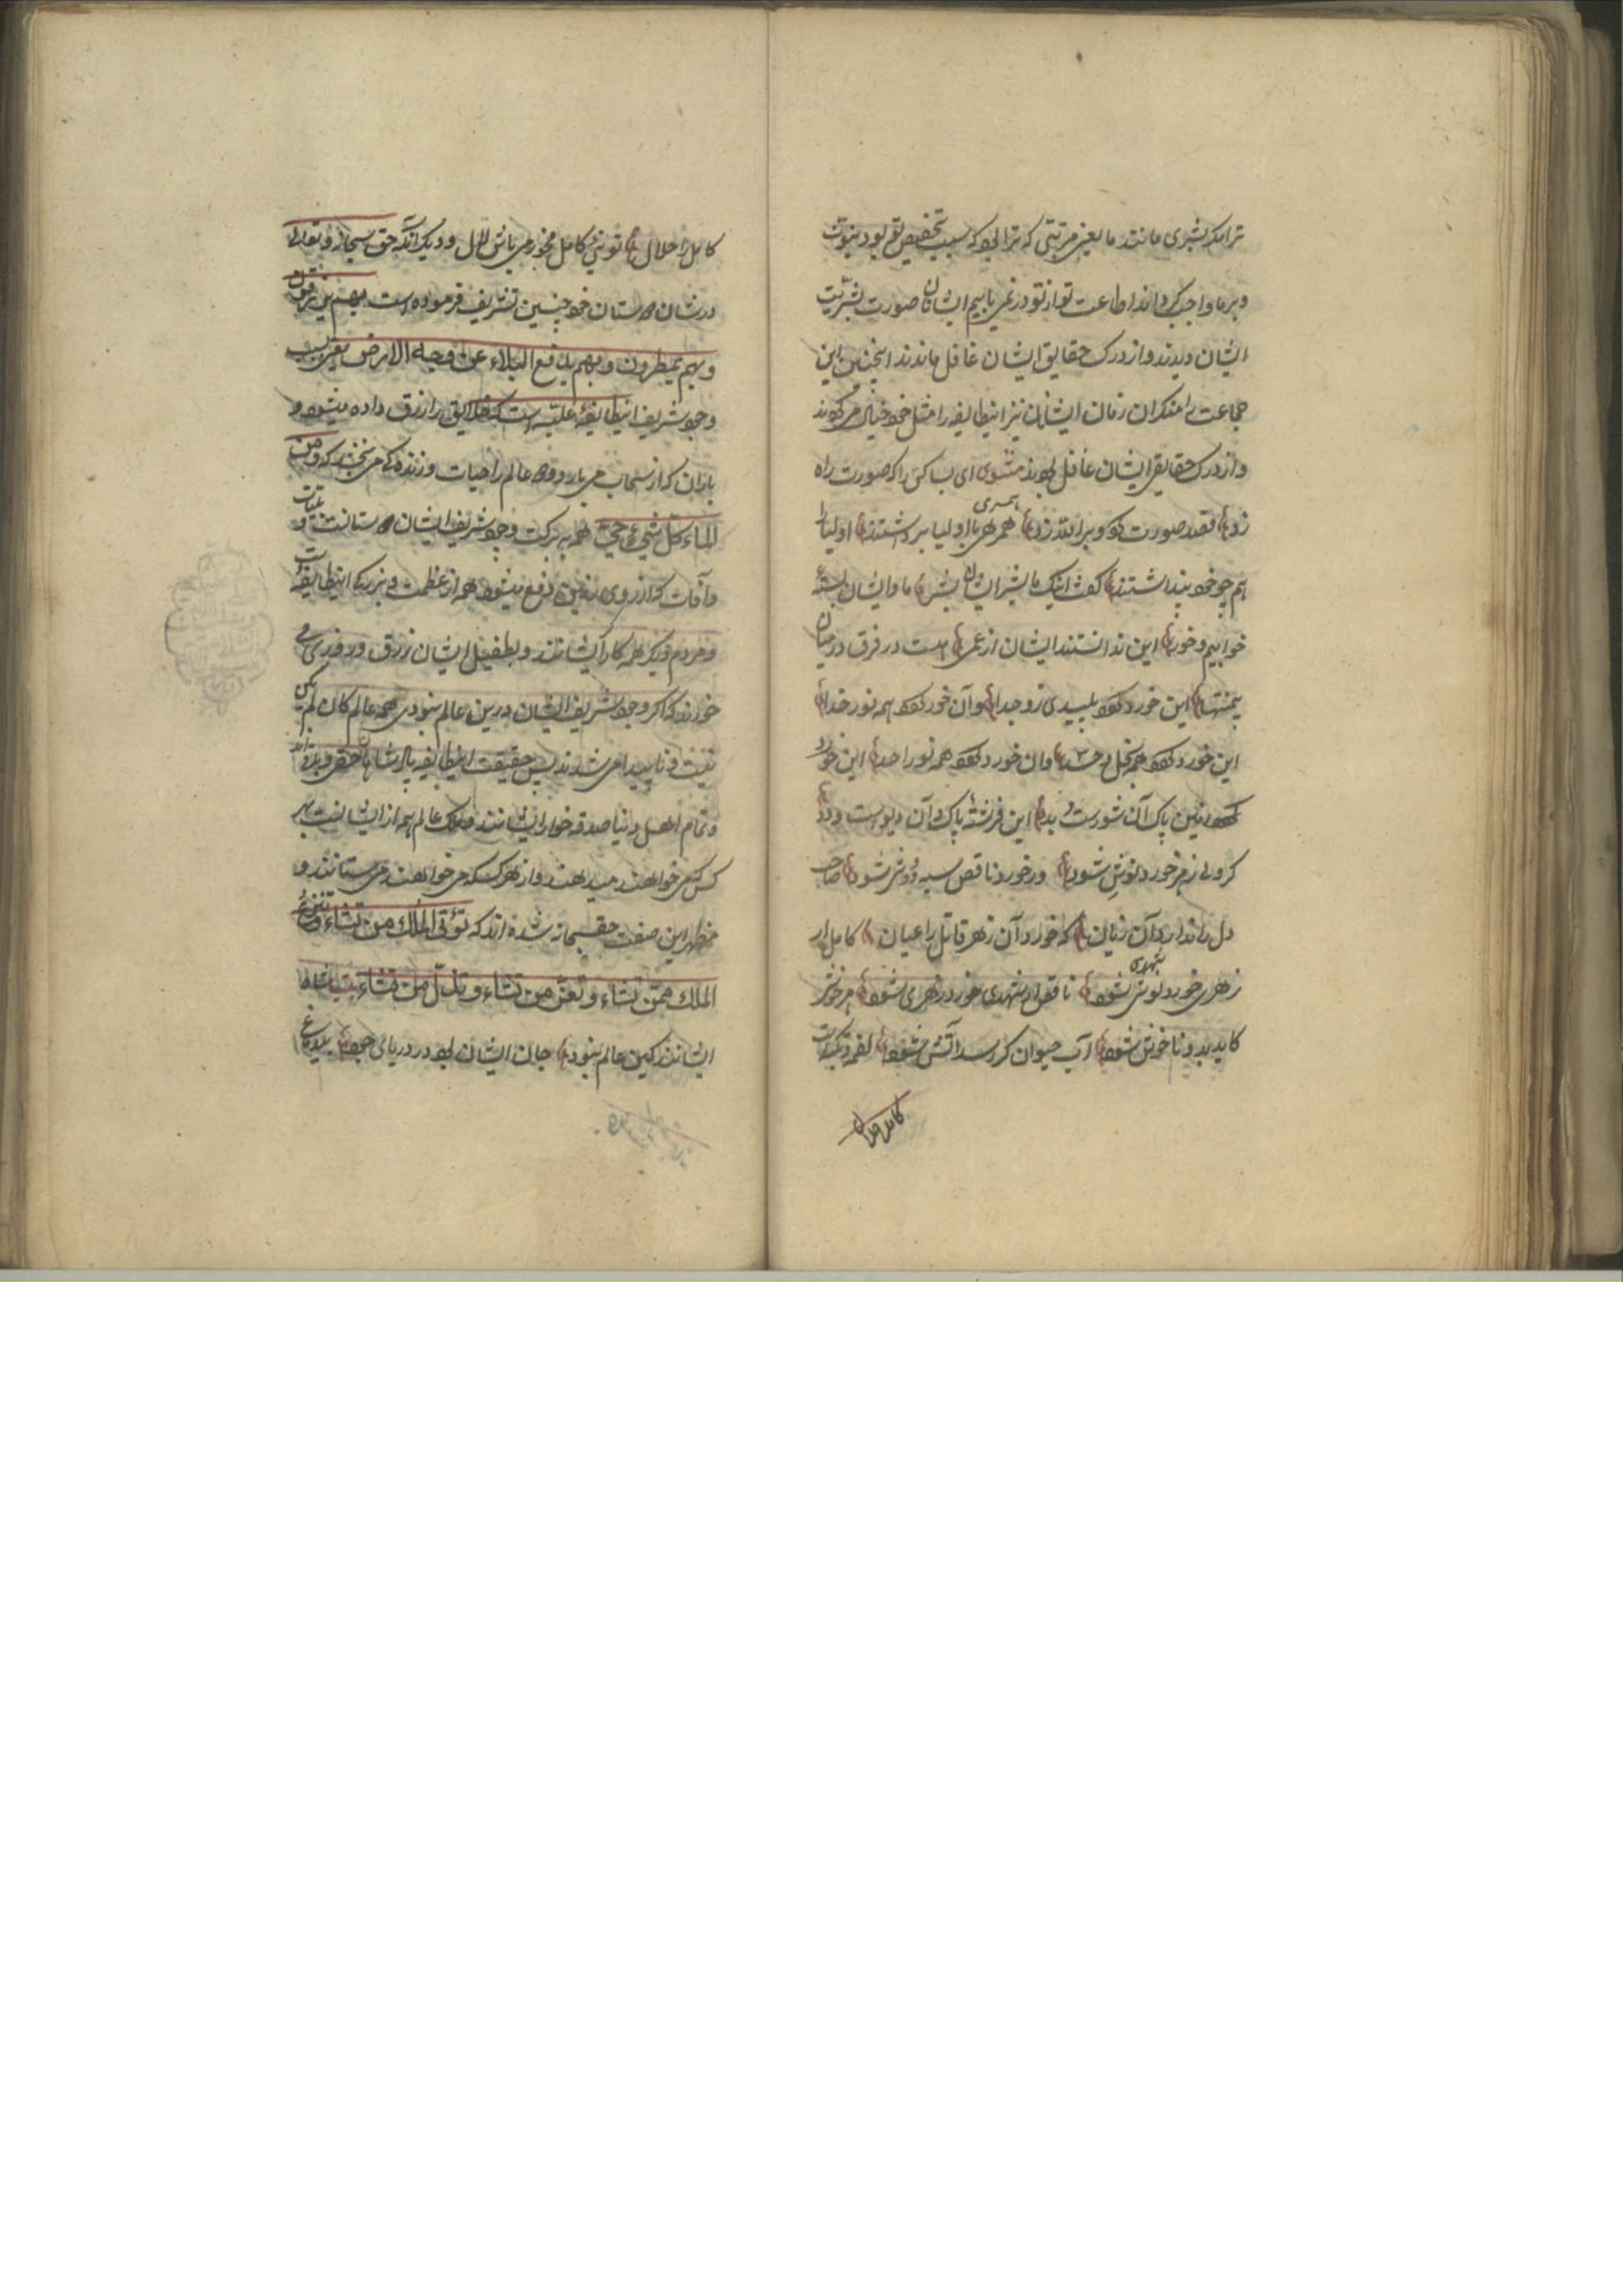 ترا مگر بشری مانند ما یعنی مرتبتی که ترا بود که سبب تخصیص تو بود بنبوت
و بر ما واجب گرداند اطاعت تو از تو در نمی یابیم ایشان صورت بشریت
ایشان دیدند و از درک حقایق ایشان غافل ماندند اینچنین این
جماعت را منکران زمان ایشان نیز اینطایفه را مثل خود خیال می کردند
و از درک حقایق ایشان غافل بودند مثنوی ای بسا کس را که صورت راه
زد قصد صورت کرد و بر الله زد همسری با اولیا برداشتند اولیا را
هم چو خود پنداشتند گفت اینک ما بشر ایشان بشر ما و ایشان بسته
خوابیم و خور این ندانستند ایشان از عمی هست در فرق درمیان
بی منتها این خورد گردد پلیدی زو جدا وآن خورد گردد همه نور خدا
این خورد گردد همه بخل و حسد وان خورد گردد همه نور احد این خورد
زمین پاک آن شورست و بد این فرشته پاک و آن دیوست و دد
گر ولی زهر خورد نوش شود ور خورد ناقص سیه رویش شود صاحب
دل را ندارد آن زیان که خورد آن زهر قاتل را عیان کاملی ار
زهری خورد نوشی شود ناقص ار شهدی خورد زهری شود هر خوش
کاید بدو ناخوش شود آب حیوان گر رسد آتش شود لقمه و نکته است
کامل را حلال
کامل را حلال تو نئی کامل مخور می باش لال و دیگر آنکه حق سبحانه و تعالی
در شان دوستان خود چنین تشریف فرموده است بهم یرزقون
و بهم یمطرون و بهم یدفع البلاء عن وجه الارض یعنی بسبب
وجود شریف اینطایفه علیه است که خلایق را رزق داده میشود و
باران که از سحاب می بارد و عالم را حیات و زنده گی می بخشد که و من
الماء کل شیء حی همه به برکت وجود شریف ایشان دوستانست و بلیات
و آفات که از روی زمین دفع میشود همه از عظمت و بزرگی اینطایفه است
و مردم دیگر همه کار ایشانند و بطفیل ایشان رزق و روزی می
خورند که اگر وجود شریف ایشان درین عالم نبودی همه عالم کان لم یکن
نیست و ناپیدا می شدند پس حقیقت اینطایفه پادشاهان حقیقی و بزرگ اند
و تمام اهل دنیا صدقه خوار ایشانند و ملک عالم همه از ایشانست بهر
کس که می خواهند میدهند و از هر کسکه می خواهند می ستانند و
مظهر این صفت حق سبحانه شده اند که تؤتی الملک من تشاء و تنزع
الملک ممن تشاء و تعز من تشاء و تذل من تشاء بیت شاه
ایشانند کین عالم نبود جان ایشان بود در دریای جود